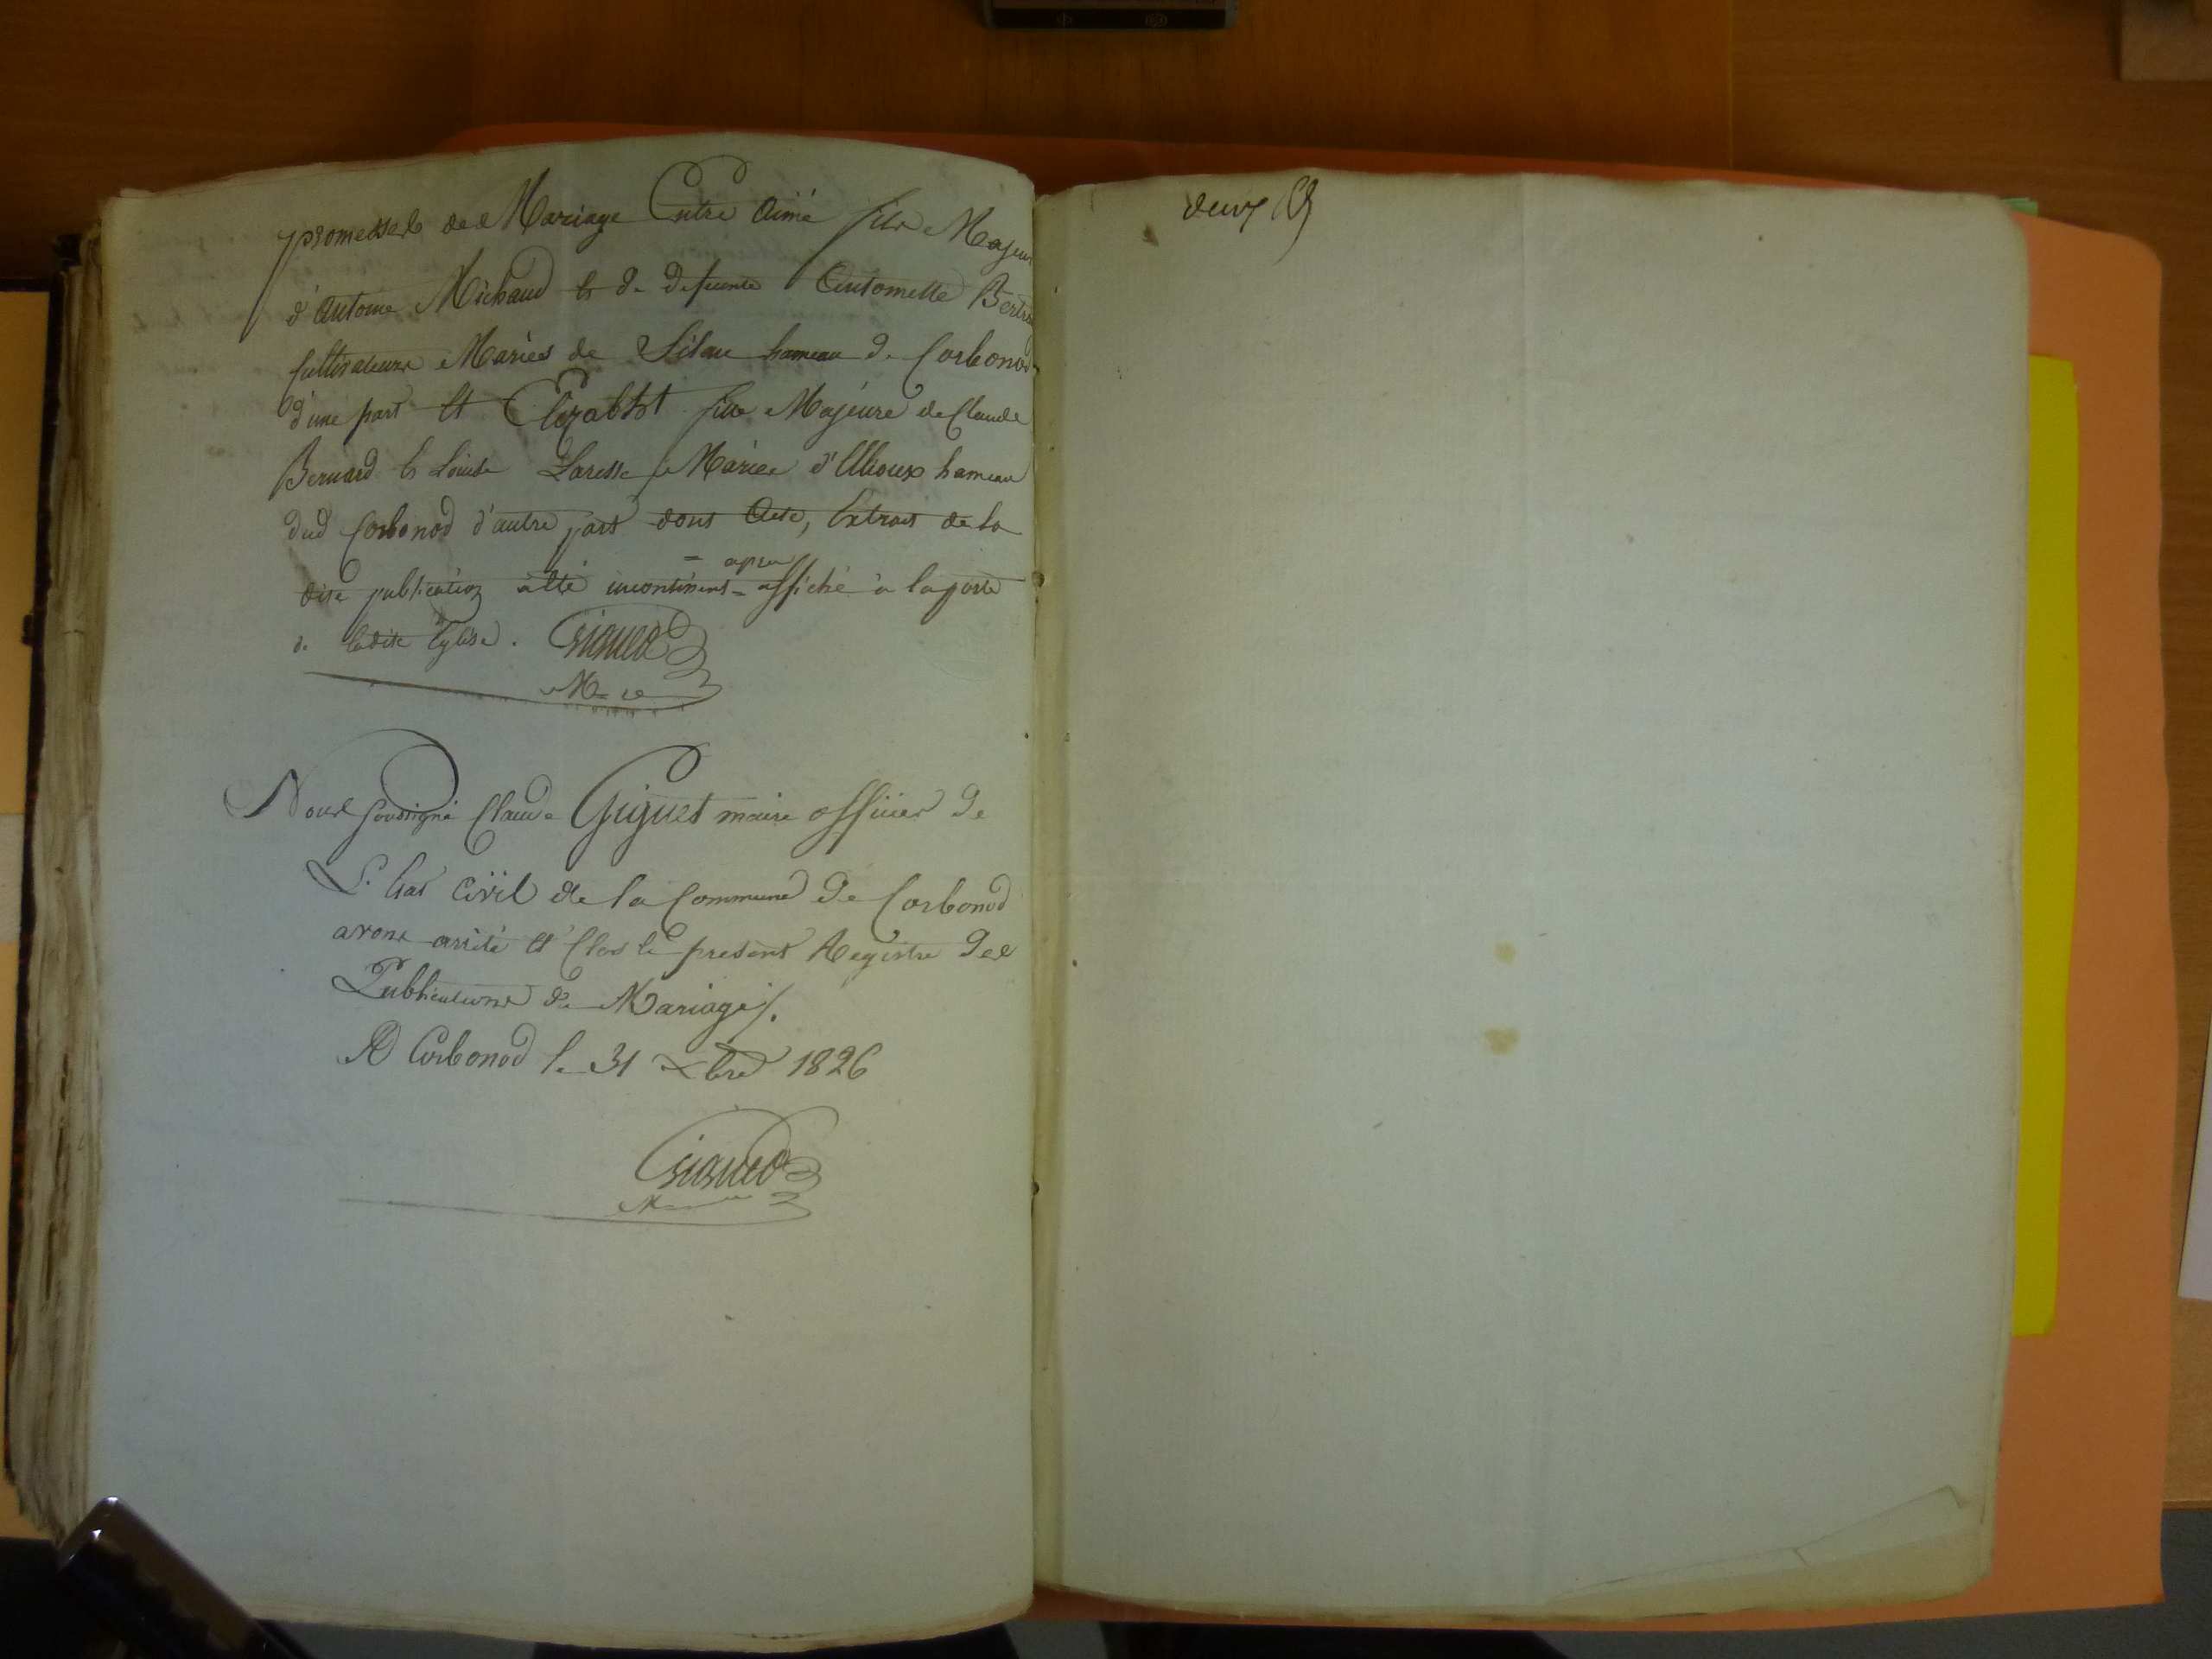 promesses de Mariage Entre Aimé fils Majeur
d'Antoine Michaud et de defeunte Antoinette
Cultivateurs Mariés de Silan hameau de Corbonod
d'une part et Elizabht fille Majeure de Claude
Bernard et Louise Laresse Mariés d'Ulioux hameau
dud Corbonod d'autre part dont Acte, Extrait de la
apres
dite publication a été incontinent = affiché à la porte
de ladite Eglise. Giguet
Nous soussigné Claude Giguet maire officier de
L'Etat Civil de la Commune de Corbonod
avons arrêté et Clos le présent Registre des
Publications de Mariage /.
A Corbonod le 31 Xbre 1826
Giguet